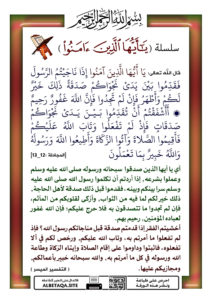 بسم الله الرحمن الرحيم
سلسلة ( يَـٰٓأَيُّهَا ٱلَّذِينَ ءَامَنُوٓا۟ )
قال الله تعالى: { يَا أَيُّهَا الَّذِينَ آمَنُوا إِذَا نَاجَيْتُمُ الرَّسُولَ
فَقَدِّمُوا بَيْنَ يَدَيْ نَجْوَاكُمْ صَدَقَةً ذَلِكَ خَيْرٌ
لَكُمْ وَأَطْهَرُ فَإِنْ لَمْ تَجِدُوا فَإِنَّ اللَّهَ غَفُورٌ رَحِيمٌ
أَأَشْفَقْتُمْ أَنْ تُقَدِّمُوا بَيْنَ يَدَيْ نَجْوَاكُمْ
صَدَقَاتٍ فَإِذْ لَمْ تَفْعَلُوا وَتَابَ اللَّهُ عَلَيْكُمْ
فَأَقِيمُوا الصَّلَاةَ وَآتُوا الزَّكَاةَ وَأَطِيعُوا اللَّهَ وَرَسُولَهُ
وَاللَّهُ خَبِيرٌ بِمَا تَعْمَلُونَ } [المجادلة :12_13]
أي يا أيها الذين صدقوا سبحانه ورسوله صلى الله عليه وسلم
وعملوا بشرعه, إذا أردتم أن تكلموا رسول الله صلى الله عليه
وسلم سرا بينكم وبينه, فقدموا قبل ذلك صدقة لأهل الحاجة,
ذلك خير لكم لما فيه من الثواب, وأزكى لقلوبكم من المآثم,
فإن لم تجدوا ما تتصدقون به فلا حرج عليكم; فإن الله غفور
لعباده المؤمنين, رحيم بهم.
أخشيتم الفقر إذا قدمتم صدقة قبل مناجاتكم رسول الله ؟ فإذ
لم تفعلوا ما أمرتم به, وتاب الله عليكم, ورخص لكم في ألا
تفعلوه, فاثبتوا وداوموا على إقام الصلاة وإيتاء الزكاة وطاعة
الله ورسوله في كل ما أمرتم به, والله سبحانه خبير بأعمالكم,
ومجازيكم عليها. [ التفسير الميسر ]
ALBETAQA.SITE